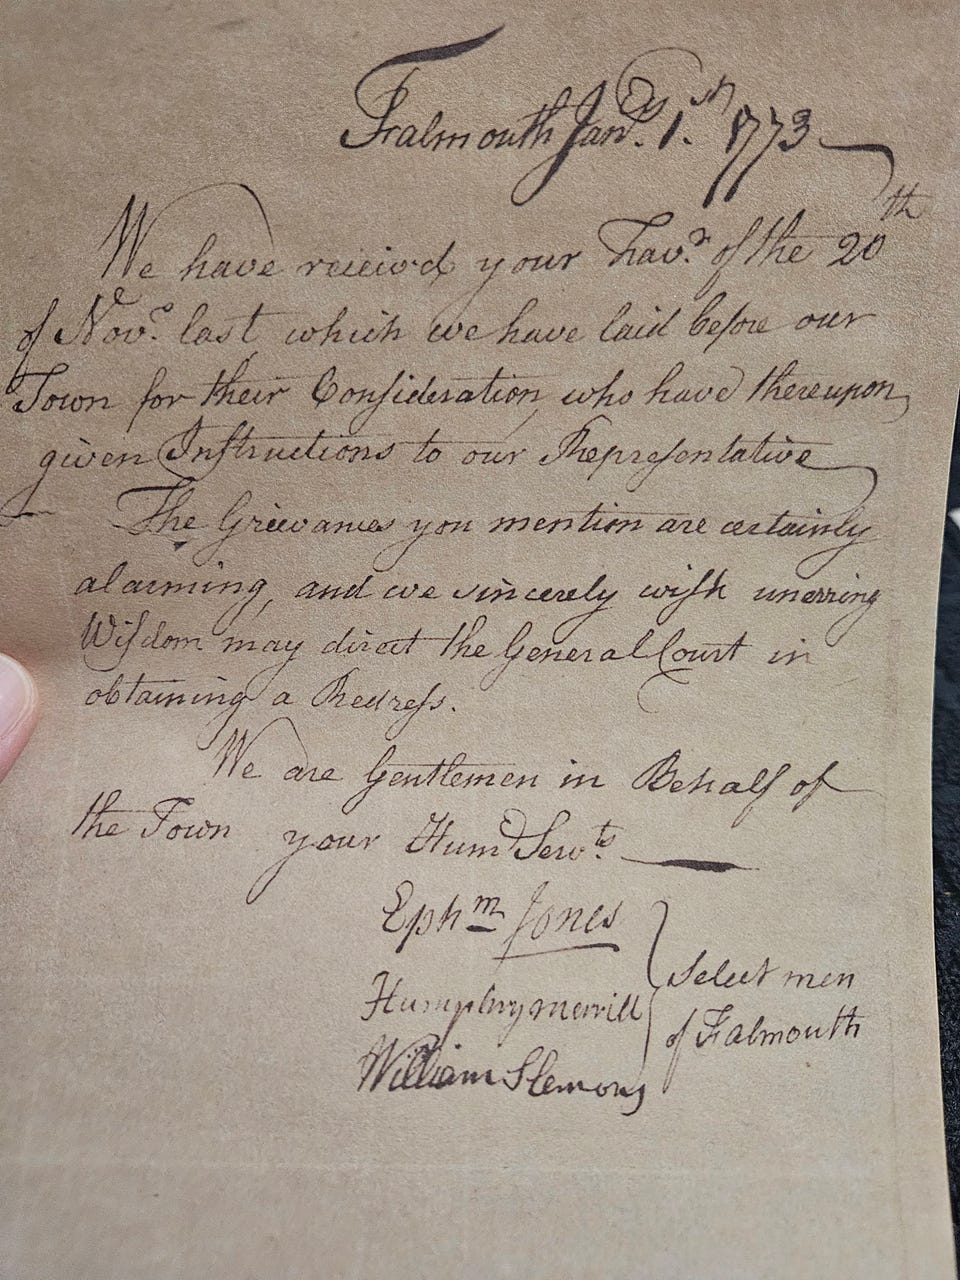 Falmouth Jan.ry 1.st 1773
We have receivd your Fav.r of the 20th
of Nov.r last which we have laid before our
Town for their Consideration, who have thereupon
given Instructions to our Representative
The Grievances you mention are certainly
alarming, and we sincerely wish unerring
Wisdom may direct the General Court in
obtaining a Redress.
We are Gentlemen in Behalf of
the Town your Hum.d Serv.ts
Ephm Jones
Humphry merrill
William Slemons
Select men
of Falmouth